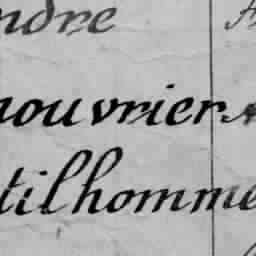 ndre
nouvrier
tilhomme